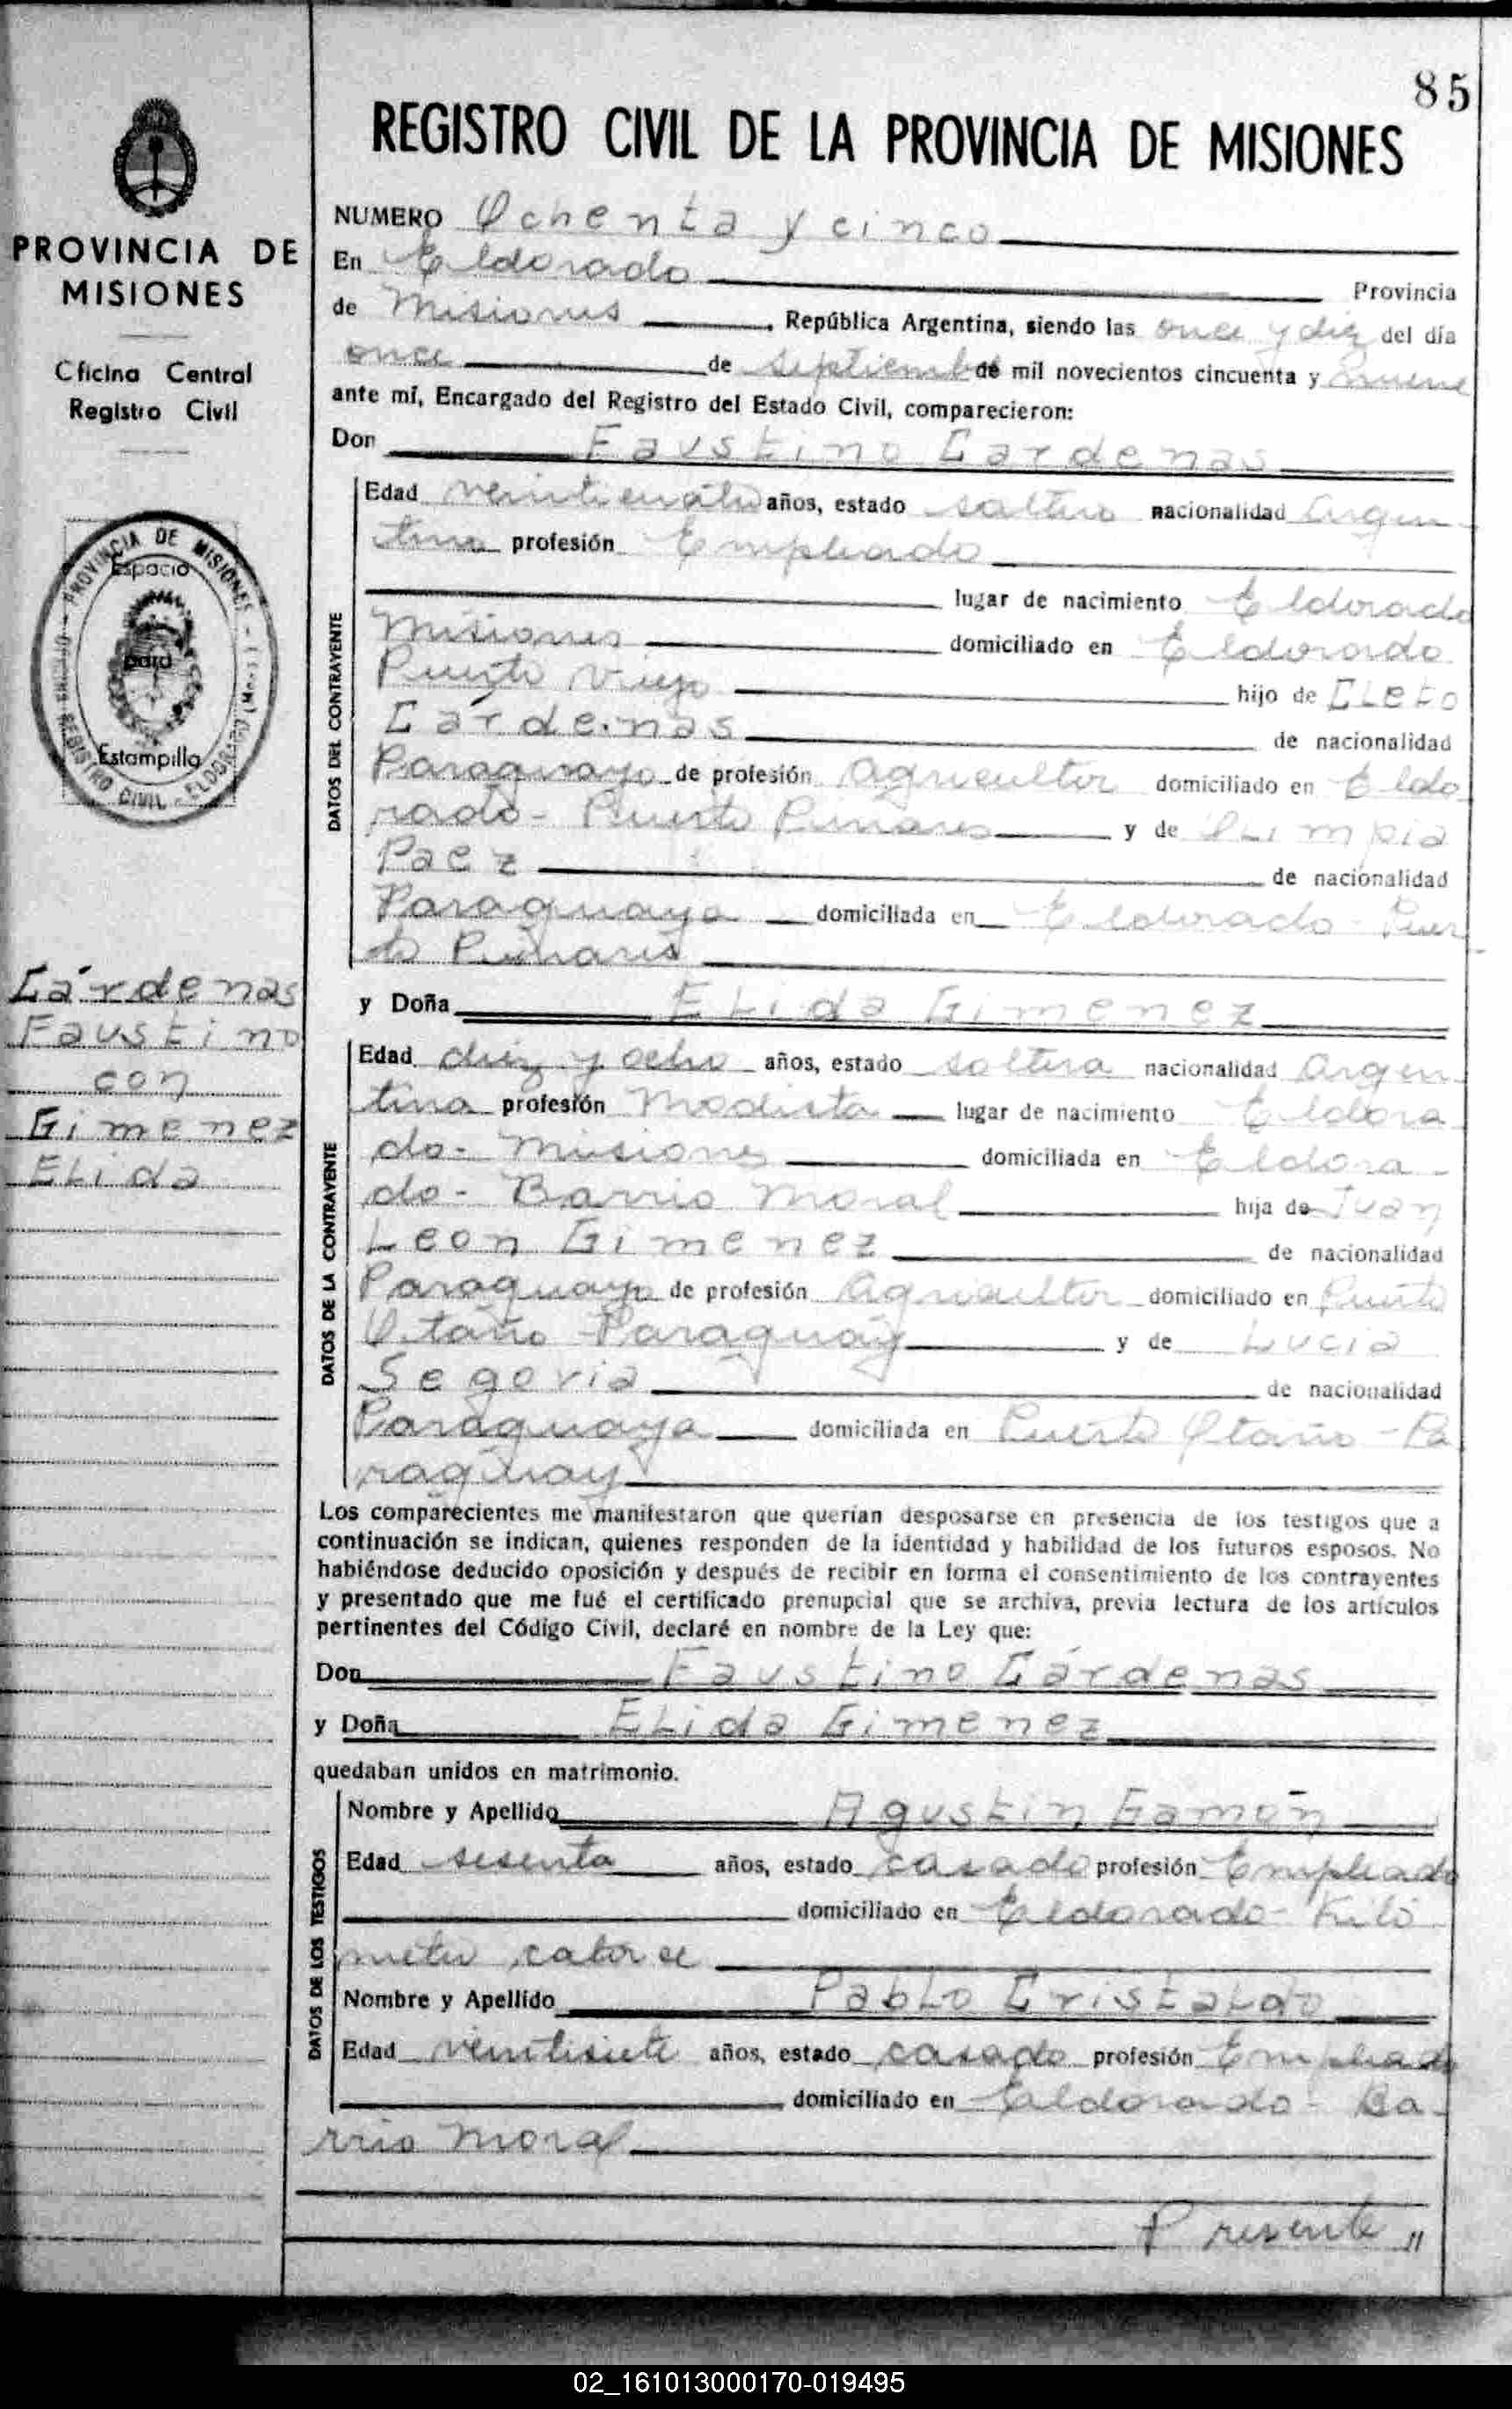 85
REGISTRO CIVIL DE LA PROVINCIA DE MISIONES
PROVINCIA DE
MISIONES
Oficina Central
Registro Civil
PROVINCIA DE MISIONES
REGISTRO CIVIL - ELDORADO
Espacio
para
Estampilla
Cárdenas
Faustino
con
Gimenez
Elida
NUMERO Ochenta y cinco
En Eldorado Provincia
de Misiones, República Argentina, siendo las once y diez del día
once de septiembre de mil novecientos cincuenta y nueve
ante mí, Encargado del Registro del Estado Civil, comparecieron:
Don Faustino Cardenas
DATOS DEL CONTRAYENTE
Edad veinticuatro años, estado soltero nacionalidad Argen
tina profesión Empleado
lugar de nacimiento Eldorado
Misiones domiciliado en Eldorado
Puerto Viejo hijo de Cleto
Cárdenas de nacionalidad
Paraguayo de profesión Agricultor domiciliado en Eldo
rado - Puerto Pinares y de Olimpia
Paez de nacionalidad
Paraguaya domiciliada en Eldorado Puer
to Pinares
y Doña Elida Gimenez
DATOS DE LA CONTRAYENTE
Edad diez y ocho años, estado soltera nacionalidad Argen
tina profesión Modista lugar de nacimiento Eldora
do - Misiones domiciliada en Eldora -
do - Barrio Moral hija de Juan
Leon Gimenez de nacionalidad
Paraguayo de profesión Agricultor domiciliado en Puerto
Otaño - Paraguay y de Lucia
Segovia de nacionalidad
Paraguaya domiciliada en Puerto Otaño - Pa
raguay
Los comparecientes me manifestaron que querían desposarse en presencia de los testigos que a
continuación se indican, quienes responden de la identidad y habilidad de los futuros esposos. No
habiéndose deducido oposición y después de recibir en forma el consentimiento de los contrayentes
y presentado que me fué el certificado prenupcial que se archiva, previa lectura de los artículos
pertinentes del Código Civil, declaré en nombre de la Ley que:
Don Faustino Cárdenas
y Doña Elida Gimenez
quedaban unidos en matrimonio.
DATOS DE LOS TESTIGOS
Nombre y Apellido Agustin Gamón
Edad sesenta años, estado casado profesión Empleado
domiciliado en Eldorado - Kiló
metro catorce
Nombre y Apellido Pablo Cristaldo
Edad veintisiete años, estado casado profesión Empleado
domiciliado en Eldorado - Ba-
rrio Moral
Presente "
02_161013000170-019495